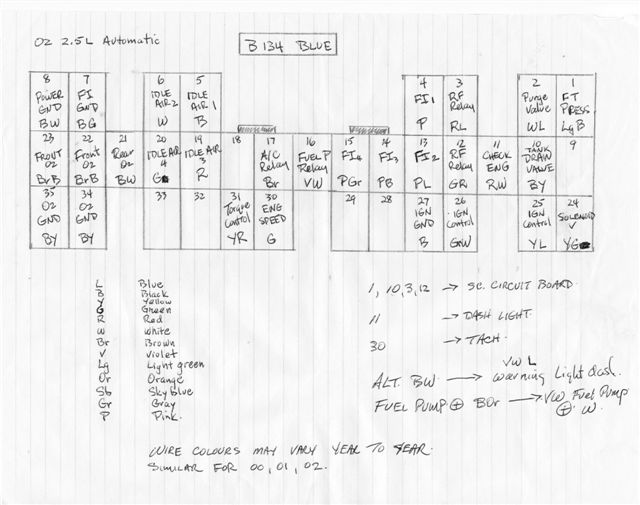 02 2.5L Automatic
B134 BLUE
8 7 6 5 4 3 2 1
POWER GND BW
FI GND BG
IDLE AIR 2 W
IDLE AIR 1 B
FI1 P
RF Relay RL
Purge Valve WL
FT PRESS. LgB
23 22 21 20 19 18 17 16 15 14 13 12 11 10 9
FRONT O2 BrB
Front O2 BrB
Rear O2 BW
IDLE AIR 4 G
IDLE AIR 3 R
A/C Relay Br
FUEL P Relay VW
FI4 PGr
FI3 PB
FI2 PL
RF Relay GR
CHECK ENG RW
TANK DRAW VALVE BY
35 34 33 32 31 30 29 28 27 26 25 24
O2 GND BY
O2 GND BY
Torque Control YR
ENG SPEED G
IGN GND B
IGN Control GrW
IGN Control YL
SOLENOID V YG
L Blue
B Black
Y Yellow
G Green
R Red
W White
Br Brown
V Violet
Lg Light green
Or Orange
Sb Sky blue
Gr Gray
P Pink
1, 10, 3, 12 → SC. CIRCUIT BOARD
11 → DASH LIGHT.
30 → TACH.
VW L
ALT. BW → warning Light dash.
FUEL PUMP ⊕ BOr → VW Fuel Pump
⊕ W.
WIRE COLOURS MAY VARY YEAR TO YEAR.
SIMILAR FOR 00, 01, 02.